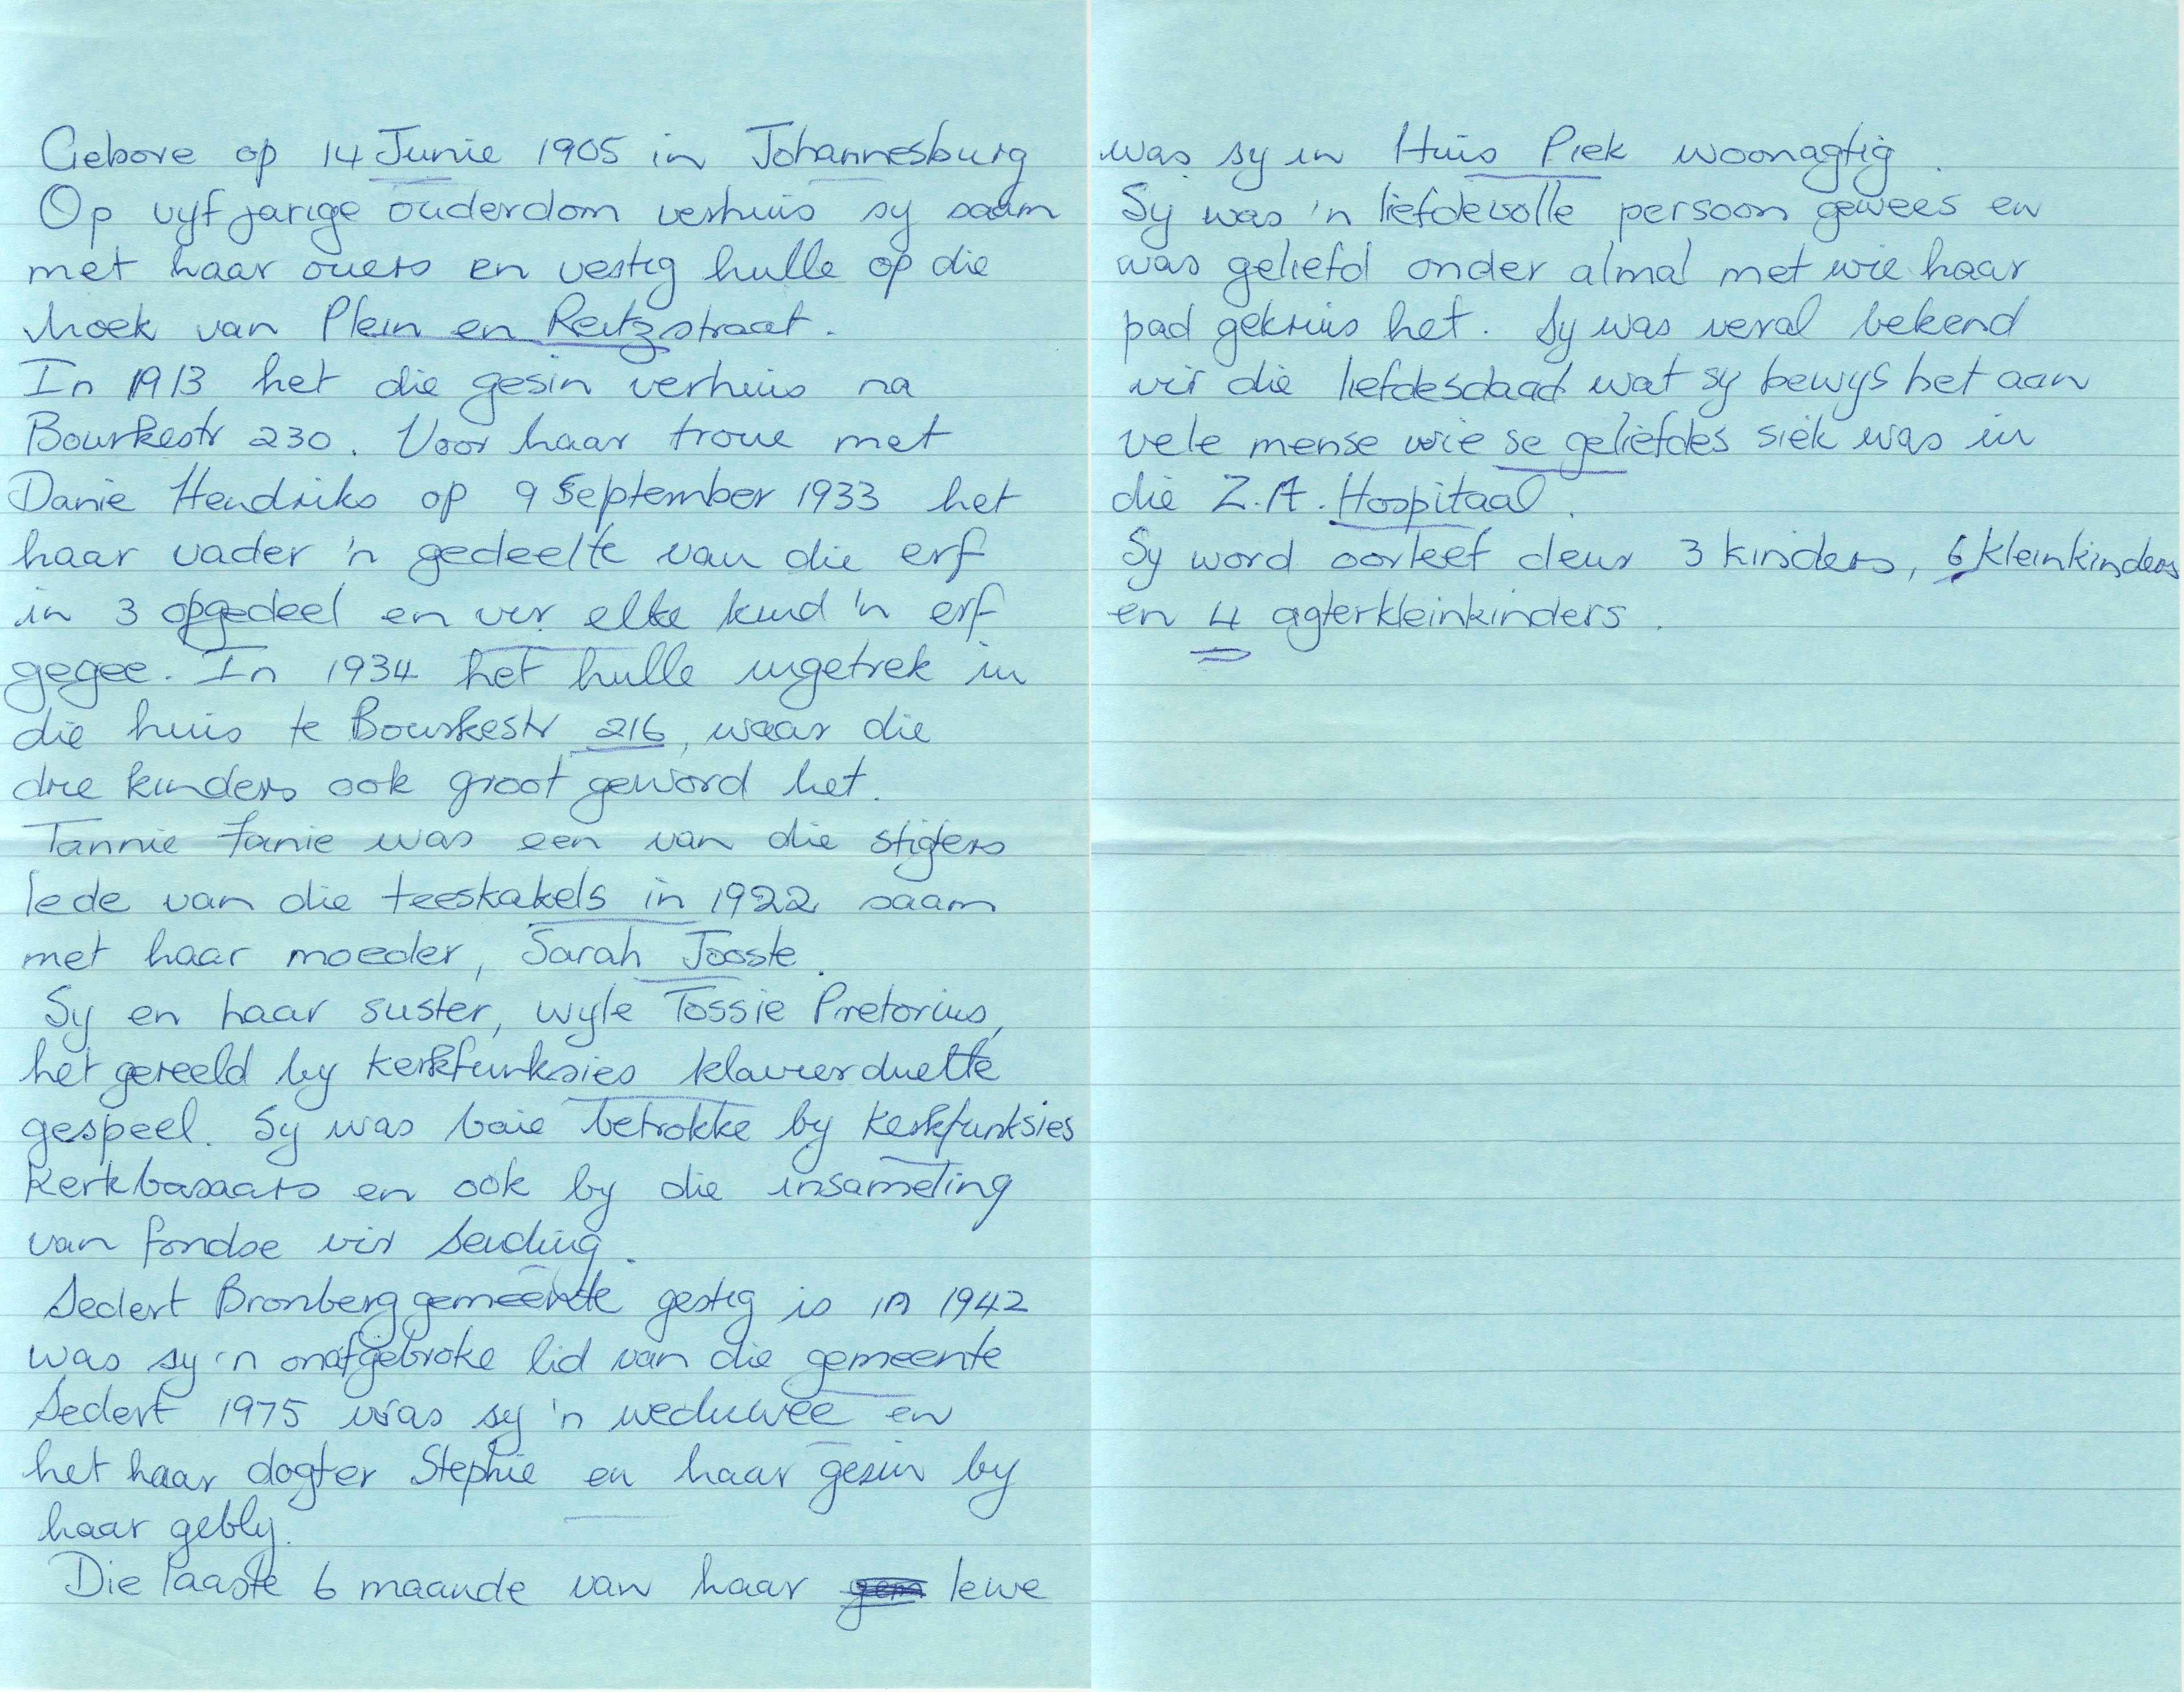 Gebore op 14 Junie 1905 in Johannesburg
Op vyf jarige ouderdom verhuis sy saam
met haar ouers en vestig hulle op die
hoek van Plein en Reitzstraat.
In 1913 het die gesin verhuis na
Bourkestr 230. Voor haar troue met
Danie Hendriks op 9 September 1933 het
haar vader 'n gedeelte van die erf
in 3 opgedeel en vir elke kind 'n erf
gegee. In 1934 het hulle ingetrek in
die huis te Bourkestr 216, waar die
drie kinders ook groot geword het.
Tannie Fanie was een van die stigters
lede van die teeskakels in 1922 saam
met haar moeder, Sarah Jooste.
Sy en haar suster, wyle Tossie Pretorius,
het gereeld by kerkfunksies klavierduette
gespeel. Sy was baie betrokke by kerkfunksies
kerkbasaars en ook by die insameling
van fondse vir sending.
Sedert Bronberg gemeente gestig is in 1942
was sy 'n onafgebroke lid van die gemeente
Sedert 1975 was sy 'n weduwee en
het haar dogter Stephie en haar gesin by
haar gebly.
Die laaste 6 maande van haar lewe
was sy in Huis Piek woonagtig.
Sy was 'n liefdevolle persoon gewees en
was geliefd onder almal met wie haar
pad gekruis het. Sy was veral bekend
vir die liefdesdaad wat sy bewys het aan
vele mense wie se geliefdes siek was in
die Z.A. Hospitaal.
Sy word oorleef deur 3 kinders, 6 kleinkinders
en 4 agterkleinkinders.